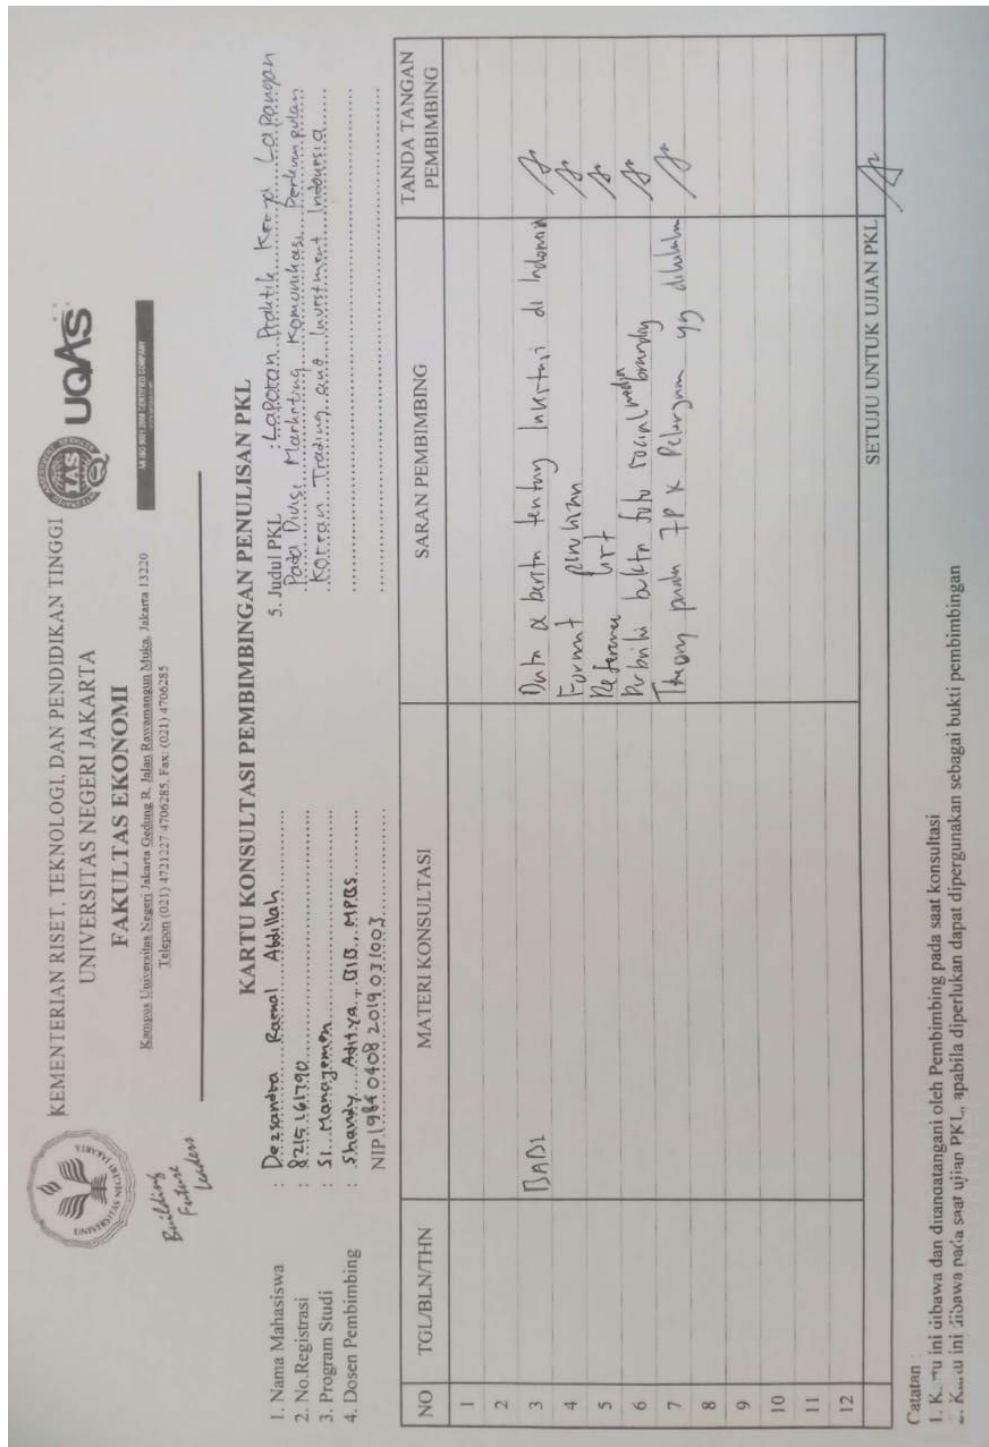 KEMENTERIAN RISET, TEKNOLOGI, DAN PENDIDIKAN TINGGI
UNIVERSITAS NEGERI JAKARTA
FAKULTAS EKONOMI
Kampus Universitas Negeri Jakarta Gedung R, Jalan Rawamangun Muka, Jakarta 13220
Telepon (021) 4721227/4706285, Fax: (021) 4706285
UNIVERSITAS NEGERI JAKARTA
Building
Future
Leaders
IAS
UQAS
AN ISO 9001:2008 CERTIFIED COMPANY
KARTU KONSULTASI PEMBIMBINGAN PENULISAN PKL
1. Nama Mahasiswa : Dezsandra Raenal Abdillah
2. No.Registrasi : 8215161790
3. Program Studi : S1 Manajemen
4. Dosen Pembimbing : Shandy Aditya, BIB, MPBS
NIP.198404082019031003
5. Judul PKL : Laporan Praktik Kerja Lapangan
Pada Divisi Marketing Komunikasi Perkumpulan
Korean Trading and Investment Indonesia
NO TGL/BLN/THN MATERI KONSULTASI SARAN PEMBIMBING TANDA TANGAN PEMBIMBING
1
2
3 BAB1 Data & berita tentang Investasi di Indonesia
4 Format penulisan
5 Reference list
6 Perbaiki bukti foto social media branding
7 Theory pada 7P & Pelanggan yg dilakukan
8
9
10
11
12
SETUJU UNTUK UJIAN PKL
Catatan :
1. Kartu ini dibawa dan ditandatangani oleh Pembimbing pada saat konsultasi
2. Kartu ini dibawa pada saat ujian PKL, apabila diperlukan dapat dipergunakan sebagai bukti pembimbingan